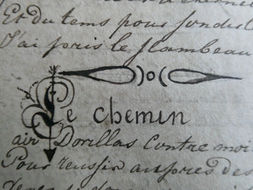 Et du tems pour
J'ai pris le flambeau
Le chemin
air Dorillas Contre moi
Pour reussir aupres des